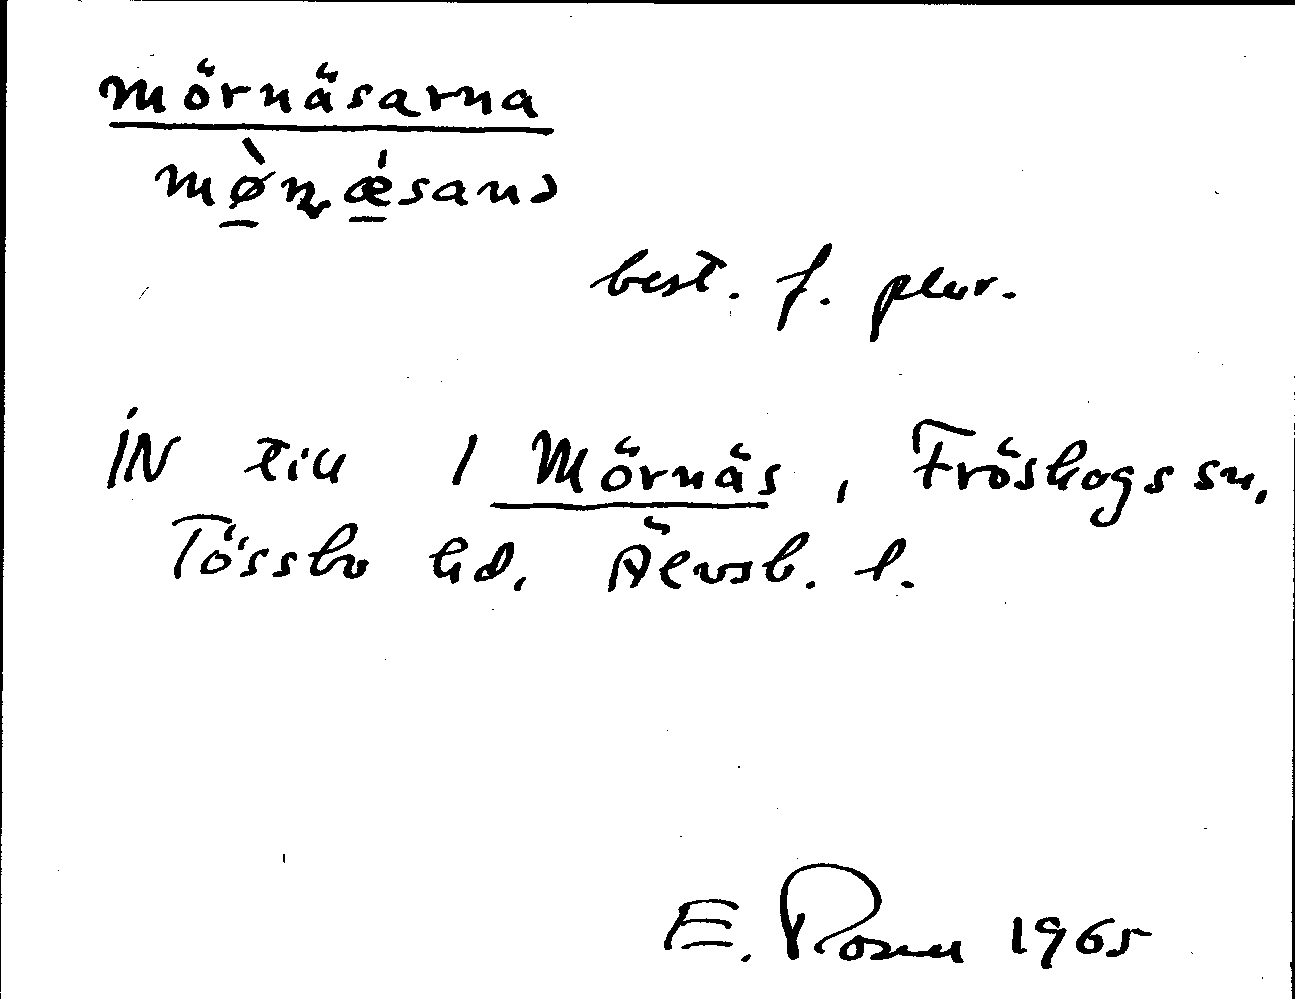 mörnäsarna
mø̠̀ɳǽ̠sanɔ
best. f. plur.
IN till 1 Mörnäs, Fröskogs sn,
Tössbo hd, Älvsb. l.
E. Rosell 1965